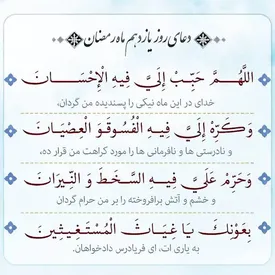 دعای روز یازدهم ماه رمضان
اللَّهُمَّ حَبِّبْ إِلَيَّ فِيهِ الْإِحْسَانَ
خدای در این ماه نیکی را پسندیده من گردان،
وَكَرِّهْ إِلَيَّ فِيهِ الْفُسُوقَ وَ الْعِصْيَانَ
و نادرستی ها و نافرمانی ها را مورد کراهت من قرار ده،
وَحَرِّمْ عَلَيَّ فِيهِ السَّخَطَ وَ النِّيرَانَ
و خشم و آتش برافروخته را بر من حرام گردان
بِعَوْنِكَ يَا غِيَاثَ الْمُسْتَغِيثِينَ
به یاری ات، ای فریادرس دادخواهان.